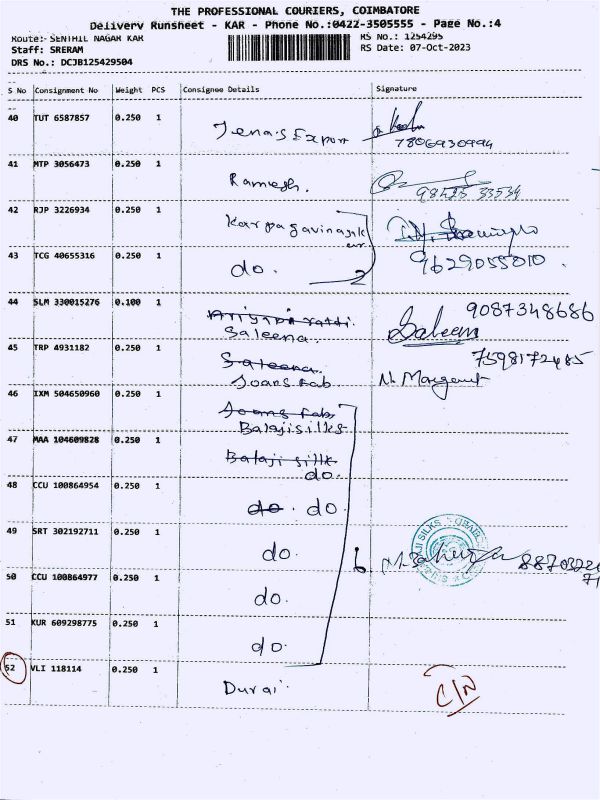 THE PROFESSIONAL COURIERS, COIMBATORE
Delivery Runsheet - KAR - Phone No.:0422-3505555 - Page No.:4
Route: SENTHIL NAGAR KAR
RS No.: 1254295
Staff: SRERAM
RS Date: 07-Oct-2023
DRS No.: DCJB125429504
S No Consignment No Weight PCS Consignee Details Signature
40 TUT 6587857 0.250 1 Jenas Export
7806930994
41 MTP 3056473 0.250 1 Ramesh.
98425 33534
42 RJP 3226934 0.250 1 Karpagavinayak
ar
43 TCG 40655316 0.250 1 do. 9629055010.
44 SLM 330015276 0.100 1 9087348686
Saleena. Saleem
45 TRP 4931182 0.250 1 Saleena. 7598172485
Joans Fab. M Margaret
46 IXM 504650960 0.250 1 Joans Fab.
Balajisilks
47 MAA 104609828 0.250 1 Balaji silk
do.
48 CCU 100864954 0.250 1 do. do.
49 SRT 302192711 0.250 1 do. 6
50 CCU 100864977 0.250 1 do.
51 KUR 609298775 0.250 1 do.
52 VLI 118114 0.250 1 Durai. C/N